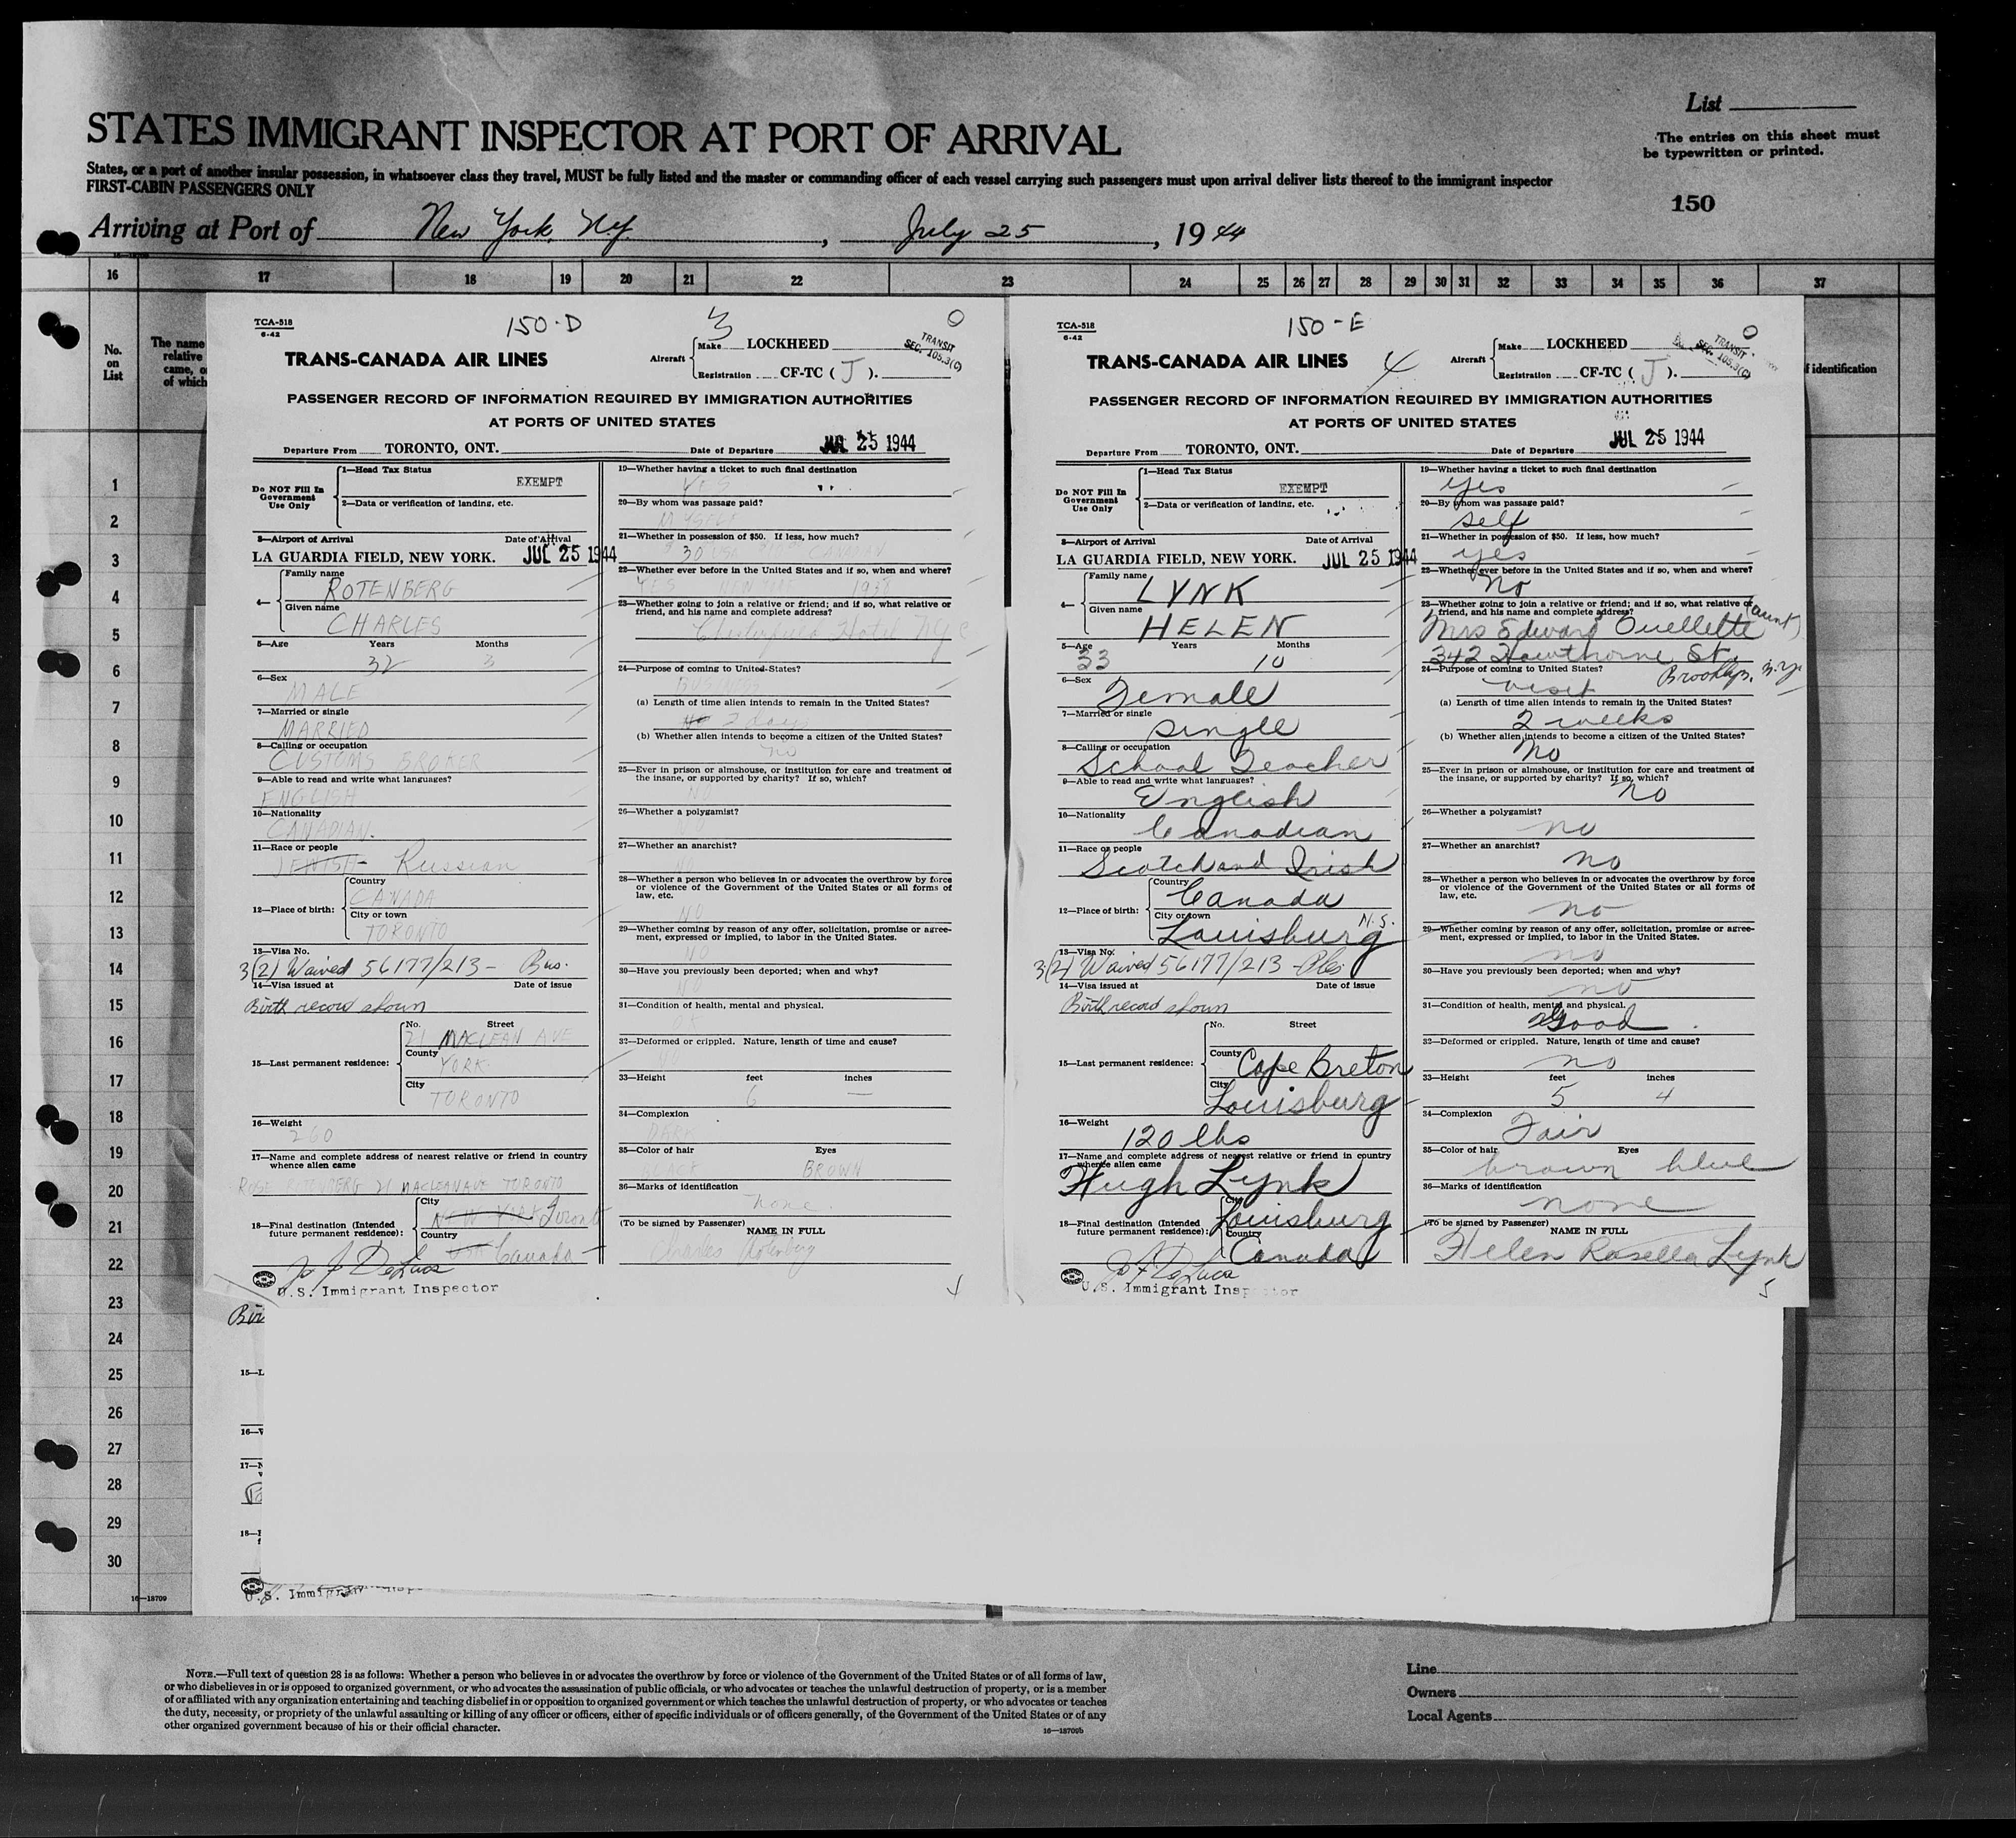 List
STATES IMMIGRANT INSPECTOR AT PORT OF ARRIVAL
The entries on this sheet must
be typewritten or printed.
States, or a port of another insular possession, in whatsoever class they travel, MUST be fully listed and the master or commanding officer of each vessel carrying such passengers must upon arrival deliver lists thereof to the immigrant inspector
FIRST-CABIN PASSENGERS ONLY
150
Arriving at Port of New York, N.Y. , July 25 , 1944
16 17 18 19 20 21 22 23 24 25 26 27 28 29 30 31 32 33 34 35 36 37
No.
on
List
The name
relative
came, o
of which
f identification
1
2
3
4
5
6
7
8
9
10
11
12
13
14
15
16
17
18
19
20
21
22
23
24
25
26
27
28
29
30
16—18709
TCA-518
6-42
150-D
3
0
TRANSIT
SEC. 105.3(C)
TRANS-CANADA AIR LINES
Aircraft
Make LOCKHEED
Registration CF-TC ( J ).
PASSENGER RECORD OF INFORMATION REQUIRED BY IMMIGRATION AUTHORITIES
AT PORTS OF UNITED STATES
Departure From TORONTO, ONT. Date of Departure JUL 25 1944
Do NOT Fill In
Government
Use Only
1—Head Tax Status
EXEMPT
2—Data or verification of landing, etc.
3—Airport of Arrival Date of Arrival
LA GUARDIA FIELD, NEW YORK. JUL 25 1944
4—
Family name
ROTENBERG
Given name
CHARLES
5—Age Years Months
32 3
6—Sex
MALE
7—Married or single
MARRIED
8—Calling or occupation
CUSTOMS BROKER
9—Able to read and write what languages?
ENGLISH
10—Nationality
CANADIAN.
11—Race or people
JEWISH Russian
12—Place of birth:
Country
CANADA
City or town
TORONTO
13—Visa No.
3(2) Waived 56177/213 - Bus.
14—Visa issued at Date of issue
Birth record shown
15—Last permanent residence:
No. Street
21 MACLEAN AVE
County
YORK.
City
TORONTO
16—Weight
260
17—Name and complete address of nearest relative or friend in country
whence alien came
ROSE ROTENBERG 21 MACLEAN AVE TORONTO
18—Final destination (Intended
future permanent residence):
City
NEW YORK Toronto
Country
USA Canada
J. F. DeLuca
U.S. Immigrant Inspector
19—Whether having a ticket to such final destination
YES
20—By whom was passage paid?
MYSELF
21—Whether in possession of $50. If less, how much?
30 USA CANADIAN
22—Whether ever before in the United States and if so, when and where?
YES NEW YORK 1938
23—Whether going to join a relative or friend; and if so, what relative or
friend, and his name and complete address?
Hotel NYC
24—Purpose of coming to United States?
BUSINESS
(a) Length of time alien intends to remain in the United States?
2 days
(b) Whether alien intends to become a citizen of the United States?
no
25—Ever in prison or almshouse, or institution for care and treatment of
the insane, or supported by charity? If so, which?
NO
26—Whether a polygamist?
NO
27—Whether an anarchist?
NO
28—Whether a person who believes in or advocates the overthrow by force
or violence of the Government of the United States or all forms of
law, etc.
NO
29—Whether coming by reason of any offer, solicitation, promise or agree-
ment, expressed or implied, to labor in the United States.
NO
30—Have you previously been deported; when and why?
NO
31—Condition of health, mental and physical.
32—Deformed or crippled. Nature, length of time and cause?
NO
33—Height feet inches
6 —
34—Complexion
DARK
35—Color of hair Eyes
BLACK BROWN
36—Marks of identification
none.
(To be signed by Passenger) NAME IN FULL
Charles Rotenberg
4
TCA-518
6-42
150-E
4
0
TRANSIT
SEC. 105.3(C)
TRANS-CANADA AIR LINES
Aircraft
Make LOCKHEED
Registration CF-TC ( J ).
PASSENGER RECORD OF INFORMATION REQUIRED BY IMMIGRATION AUTHORITIES
AT PORTS OF UNITED STATES
Departure From TORONTO, ONT. Date of Departure JUL 25 1944
Do NOT Fill In
Government
Use Only
1—Head Tax Status
EXEMPT
2—Data or verification of landing, etc.
3—Airport of Arrival Date of Arrival
LA GUARDIA FIELD, NEW YORK. JUL 25 1944
4—
Family name
LYNK
Given name
HELEN
5—Age Years Months
33 10
6—Sex
Female
7—Married or single
single
8—Calling or occupation
School Teacher
9—Able to read and write what languages?
English
10—Nationality
Canadian
11—Race or people
Scotch and Irish
12—Place of birth:
Country
Canada
City or town
Louisburg N.S.
13—Visa No.
3(2) Waived 56177/213 - Ples
14—Visa issued at Date of issue
Birth record shown
15—Last permanent residence:
No. Street
County
Cape Breton
City
Louisburg
16—Weight
120 lbs
17—Name and complete address of nearest relative or friend in country
whence alien came
Hugh Lynk
18—Final destination (Intended
future permanent residence):
City
Louisburg
Country
Canada
J. F. DeLuca
U.S. Immigrant Inspector
19—Whether having a ticket to such final destination
yes
20—By whom was passage paid?
self
21—Whether in possession of $50. If less, how much?
yes
22—Whether ever before in the United States and if so, when and where?
No
23—Whether going to join a relative or friend; and if so, what relative or
friend, and his name and complete address?
(aunt)
Mrs Edward Ouellette
342 Hawthorne St.
Brooklyn, N.Y.
24—Purpose of coming to United States?
visit
(a) Length of time alien intends to remain in the United States?
2 weeks
(b) Whether alien intends to become a citizen of the United States?
No
25—Ever in prison or almshouse, or institution for care and treatment of
the insane, or supported by charity? If so, which?
No
26—Whether a polygamist?
no
27—Whether an anarchist?
no
28—Whether a person who believes in or advocates the overthrow by force
or violence of the Government of the United States or all forms of
law, etc.
no
29—Whether coming by reason of any offer, solicitation, promise or agree-
ment, expressed or implied, to labor in the United States.
no
30—Have you previously been deported; when and why?
no
31—Condition of health, mental and physical.
Good
32—Deformed or crippled. Nature, length of time and cause?
no
33—Height feet inches
5 4
34—Complexion
Fair
35—Color of hair Eyes
brown blue
36—Marks of identification
none
(To be signed by Passenger) NAME IN FULL
Helen Rosella Lynk
5
Bir
15—L
16—W
17—N
18—F
U.S. Immigrant Insp
NOTE.—Full text of question 28 is as follows: Whether a person who believes in or advocates the overthrow by force or violence of the Government of the United States or of all forms of law,
or who disbelieves in or is opposed to organized government, or who advocates the assassination of public officials, or who advocates or teaches the unlawful destruction of property, or is a member
of or affiliated with any organization entertaining and teaching disbelief in or opposition to organized government or which teaches the unlawful destruction of property, or who advocates or teaches
the duty, necessity, or propriety of the unlawful assaulting or killing of any officer or officers, either of specific individuals or of officers generally, of the Government of the United States or of any
other organized government because of his or their official character.
16—18709b
Line
Owners
Local Agents